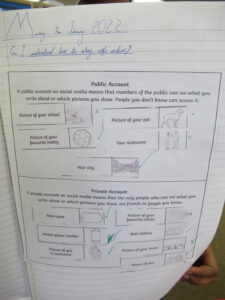 Monday 7th January 2022
Can I understand how to stay safe online?
Public Account
A public account on social media means that members of the public can see what you
write about or which pictures you show. People you don't know can access it.
Picture of your school
Picture of your pet
Picture of your favourite hobby
Your nickname
Your city
Private Account
A private account on social media means that the only people who can see what you
write about or which pictures you show, are friends or people you know.
Real name
Picture of your favourite
Mobile phone number
Real address
Picture of you
Picture of your house
Picture of you